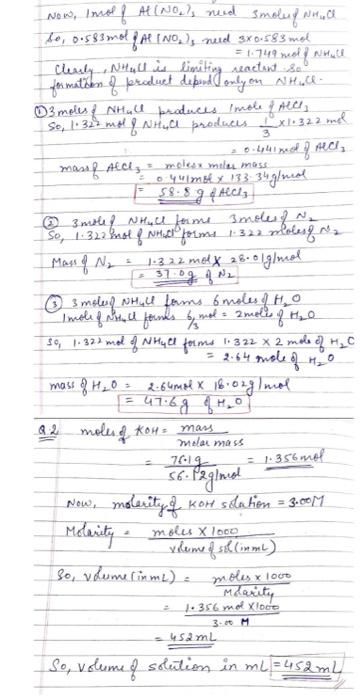 Now, 1mol of Al(NO2)3 need 3moles of NH4Cl
So, 0.583mol of Al(NO2)3 need 3x0.583 mol
= 1.749 mol of NH4Cl
Clearly, NH4Cl is limiting reactant. So
formation of product depend only on NH4Cl.
① 3 moles of NH4Cl produces 1mole of AlCl3
So, 1.322 mol of NH4Cl produces 1/3 x 1.322 mol
= 0.441 mol of AlCl3
mass of AlCl3 = moles x molar mass
= 0.441mol x 133.34g/mol
= 58.8 g of AlCl3
② 3 mole of NH4Cl forms 3moles of N2
So, 1.322 mol of NH4Cl forms 1.322 moles of N2
Mass of N2 = 1.322 mol x 28.01g/mol
= 37.0g of N2
③ 3 mole of NH4Cl forms 6 moles of H2O
1mole of NH4Cl forms 6/3 mol = 2moles of H2O
So, 1.322 mol of NH4Cl forms 1.322 x 2 mole of H2O
= 2.64 mole of H2O
mass of H2O = 2.64mol x 18.02g/mol
= 47.6g of H2O
Q2 moles of KOH = mass / molar mass
= 76.1g / 56.12g/mol = 1.356mol
Now, molarity of KOH solution = 3.00M
Molarity = moles X 1000 / volume of sol (in mL)
So, volume (in mL) = moles x 1000 / Molarity
= 1.356 mol x1000 / 3.00 M
= 452mL
So, volume of solution in mL = 452 mL